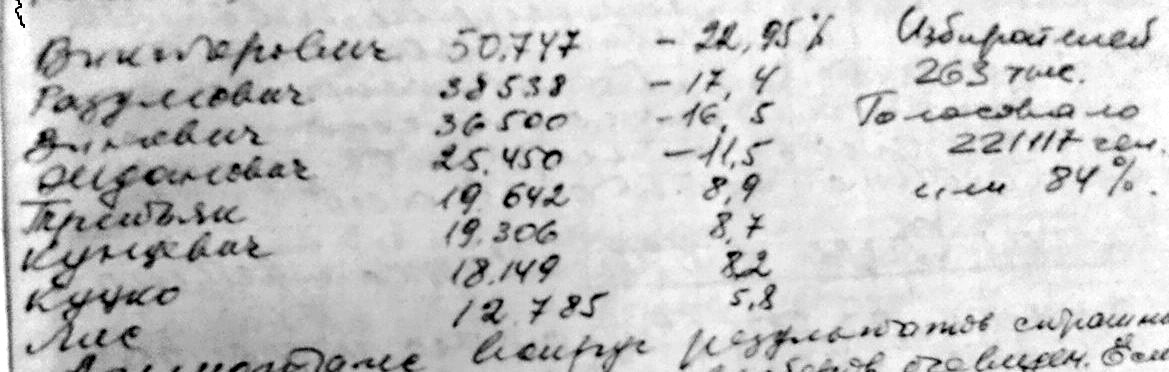 50.747 - 22,95% Избирателей
Разумович 38538 - 17,4 263 тыс.
36500 - 16,5 Голосовало
25.450 - 11,5 221117 чел.
Третьяк 19.642 8,9 или 84%.
Кунцевич 19.306 8,7
Куцко 18.149 8,2
Лис 12.785 5,8
вокруг результатов страшно
очевиден. Если